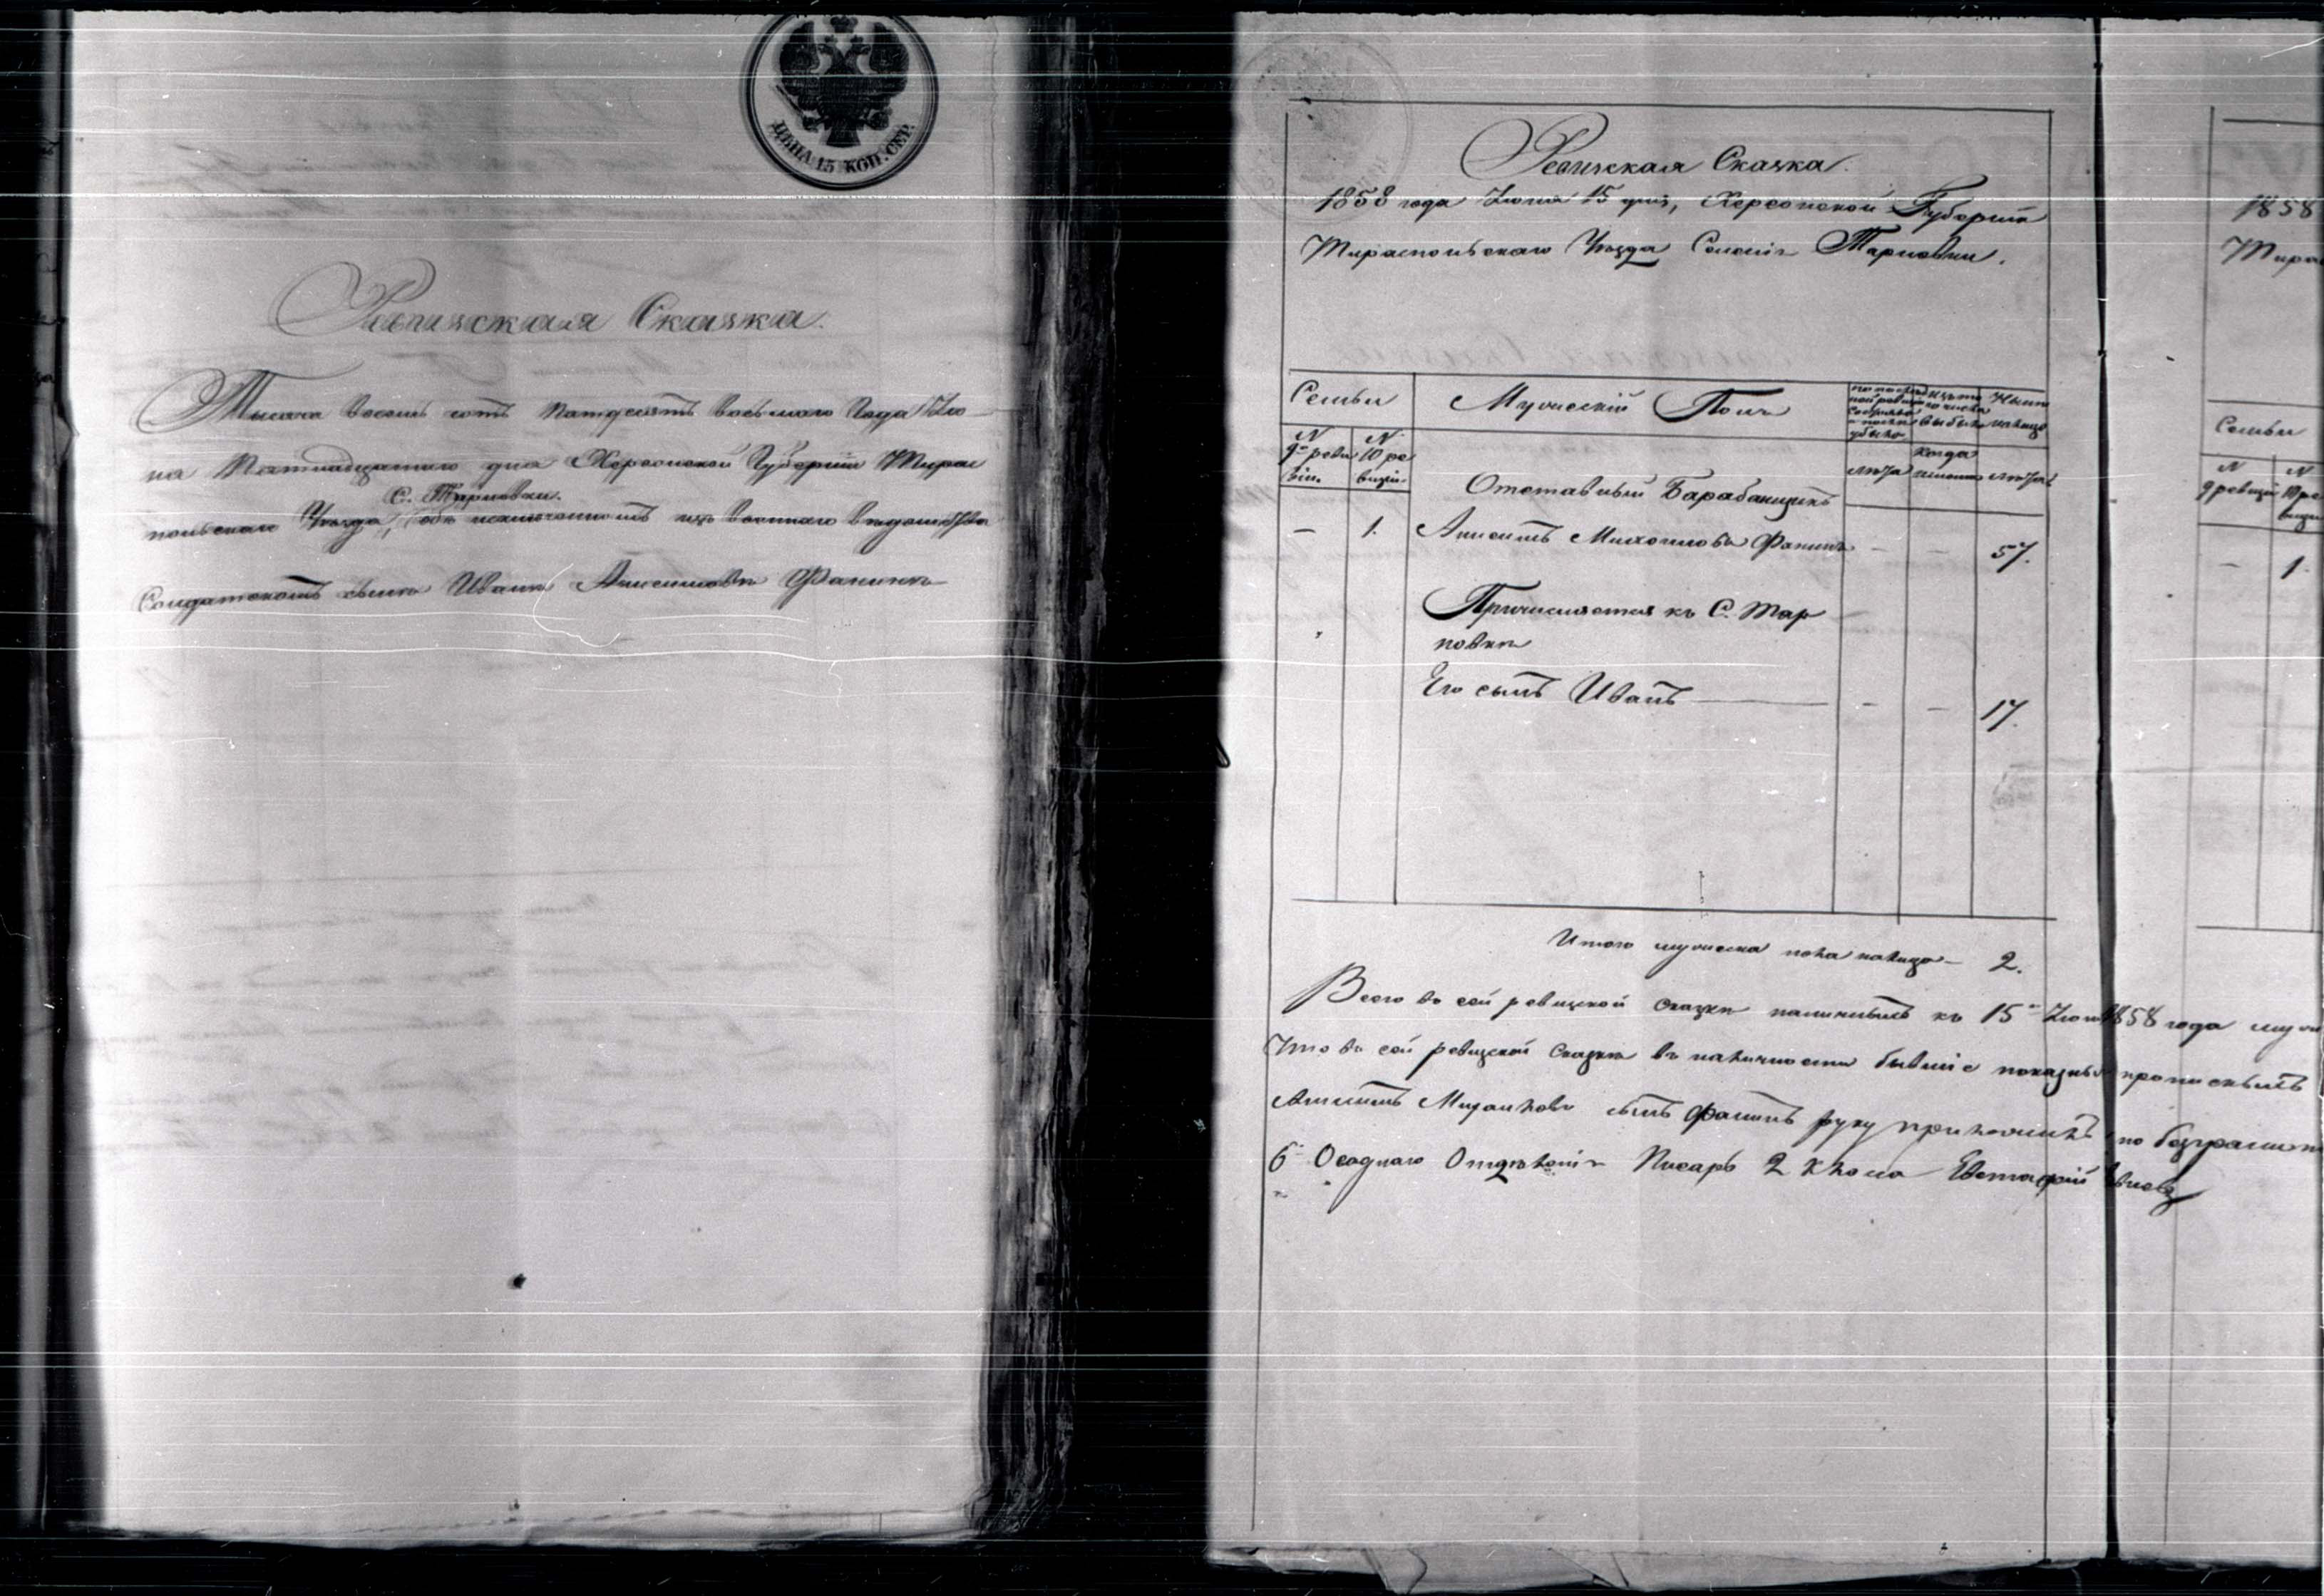 ЦѢНА 15 КОП. СЕР.
Ревизская Сказка.
Тысяча восемь сотъ пятдесятъ восьмаго Года Iю
на Пятнадцатаго дня Херсонской Губернiи Тирас
С. Тарновки.
польскаго Уѣзда, объ исключенномъ изъ военнаго вѣдомства
Солдатскомъ сынѣ Иванѣ Анисимовѣ Фанинѣ
Ревизская Сказка.
1858 года Iюня 15 дня, Херсонской Губернiи
Тираспольскаго Уѣзда Селенiя Тарновки.
Семьи
Мужескiй Полъ
Нынѣ
на лицо
выбыло
убыло
когда
№
9й реви
зiи.
№
10 ре
визiи
лѣта
лѣта
Отставный Барабанщикъ
— 1. Анисимъ Фанинъ — — 57.
Причисляется къ С. Тар
новки
Его сынъ Иванъ — — 17.
Итого мужеска пола налицо — 2.
Всего въ сей ревизской сказки наличныхъ къ 15 Iюня 1858 года муж
Что въ сей ревизской Сказки въ наличности бывшiе показны прописныхъ
Анисимъ сынъ Фанинъ руку приложилъ по безграмот
6 Отдѣленiя Писарь 2 класа Евстафiй
1858
Тирас
Семьи
№
9 ревизiи
№
10 ре
визiи
— 1